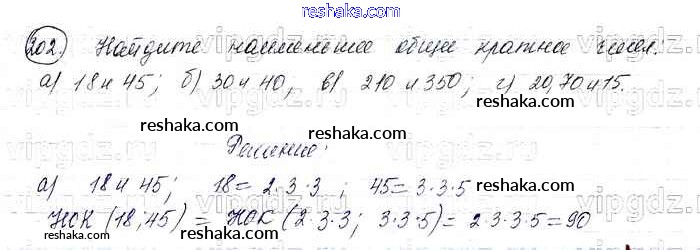 reshaka.com
202. Найдите наименьшее общее кратное чисел.
а) 18 и 45; б) 30 и 40; в) 210 и 350; г) 20, 70 и 15.
vipgdz.ru vipgdz.ru vipgdz.ru
reshaka.com reshaka.com reshaka.com
Решение:
а) 18 и 45; 18 = 2·3·3; 45 = 3·3·5
reshaka.com reshaka.com reshaka.com
НОК (18, 45) = НОК (2·3·3; 3·3·5) = 2·3·3·5 = 90
reshaka.com